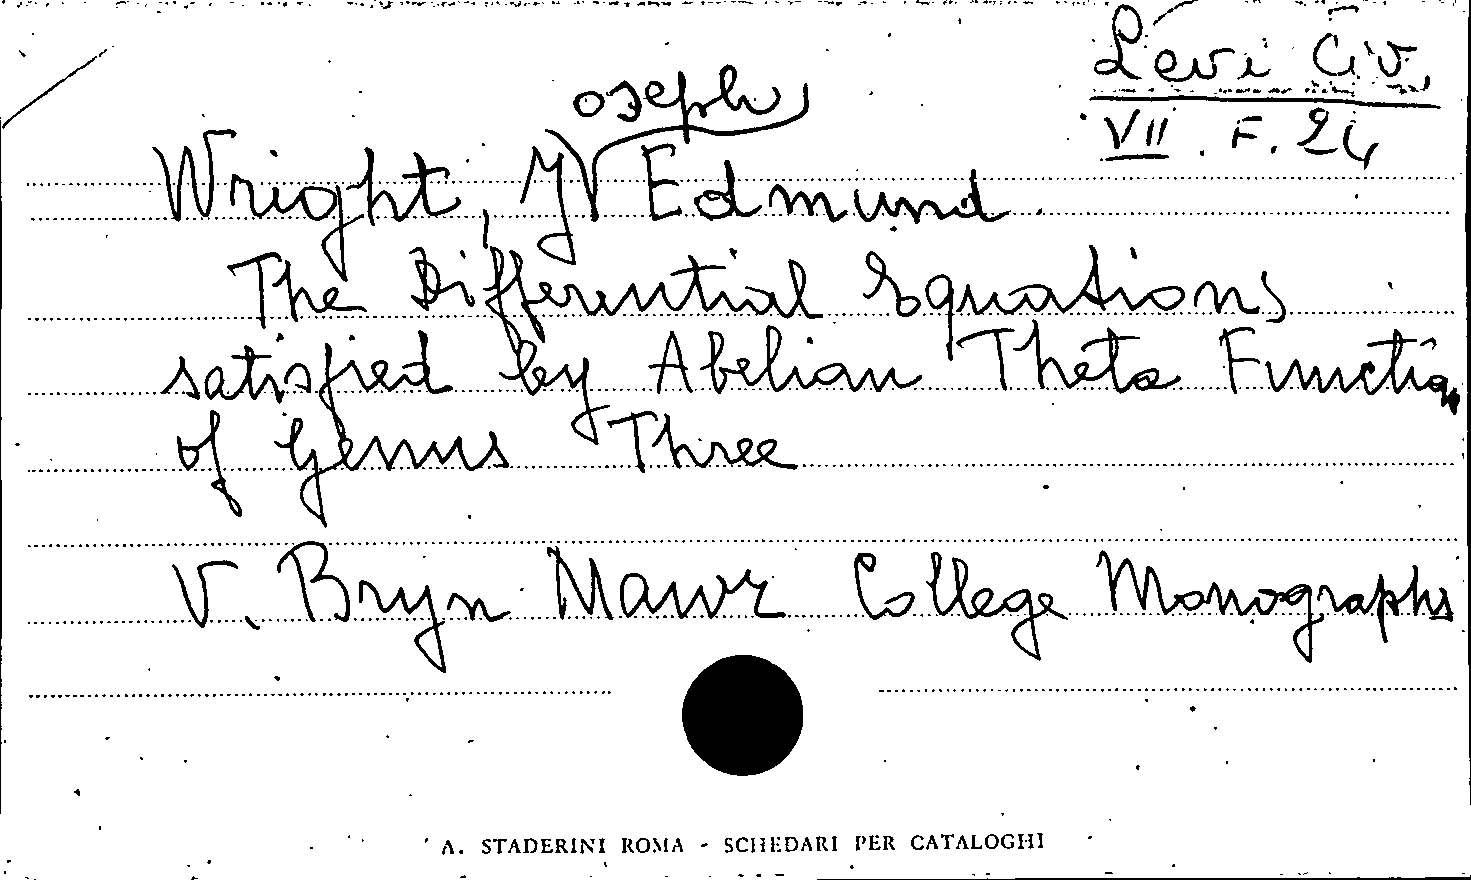 Levi Civ.
VII. F. 24
Wright, Joseph Edmund.
The Differential Equations
satisfied by Abelian Theta Function
of Genus Three
V. Bryn Mawr College Monographs
A. STADERINI ROMA - SCHEDARI PER CATALOGHI